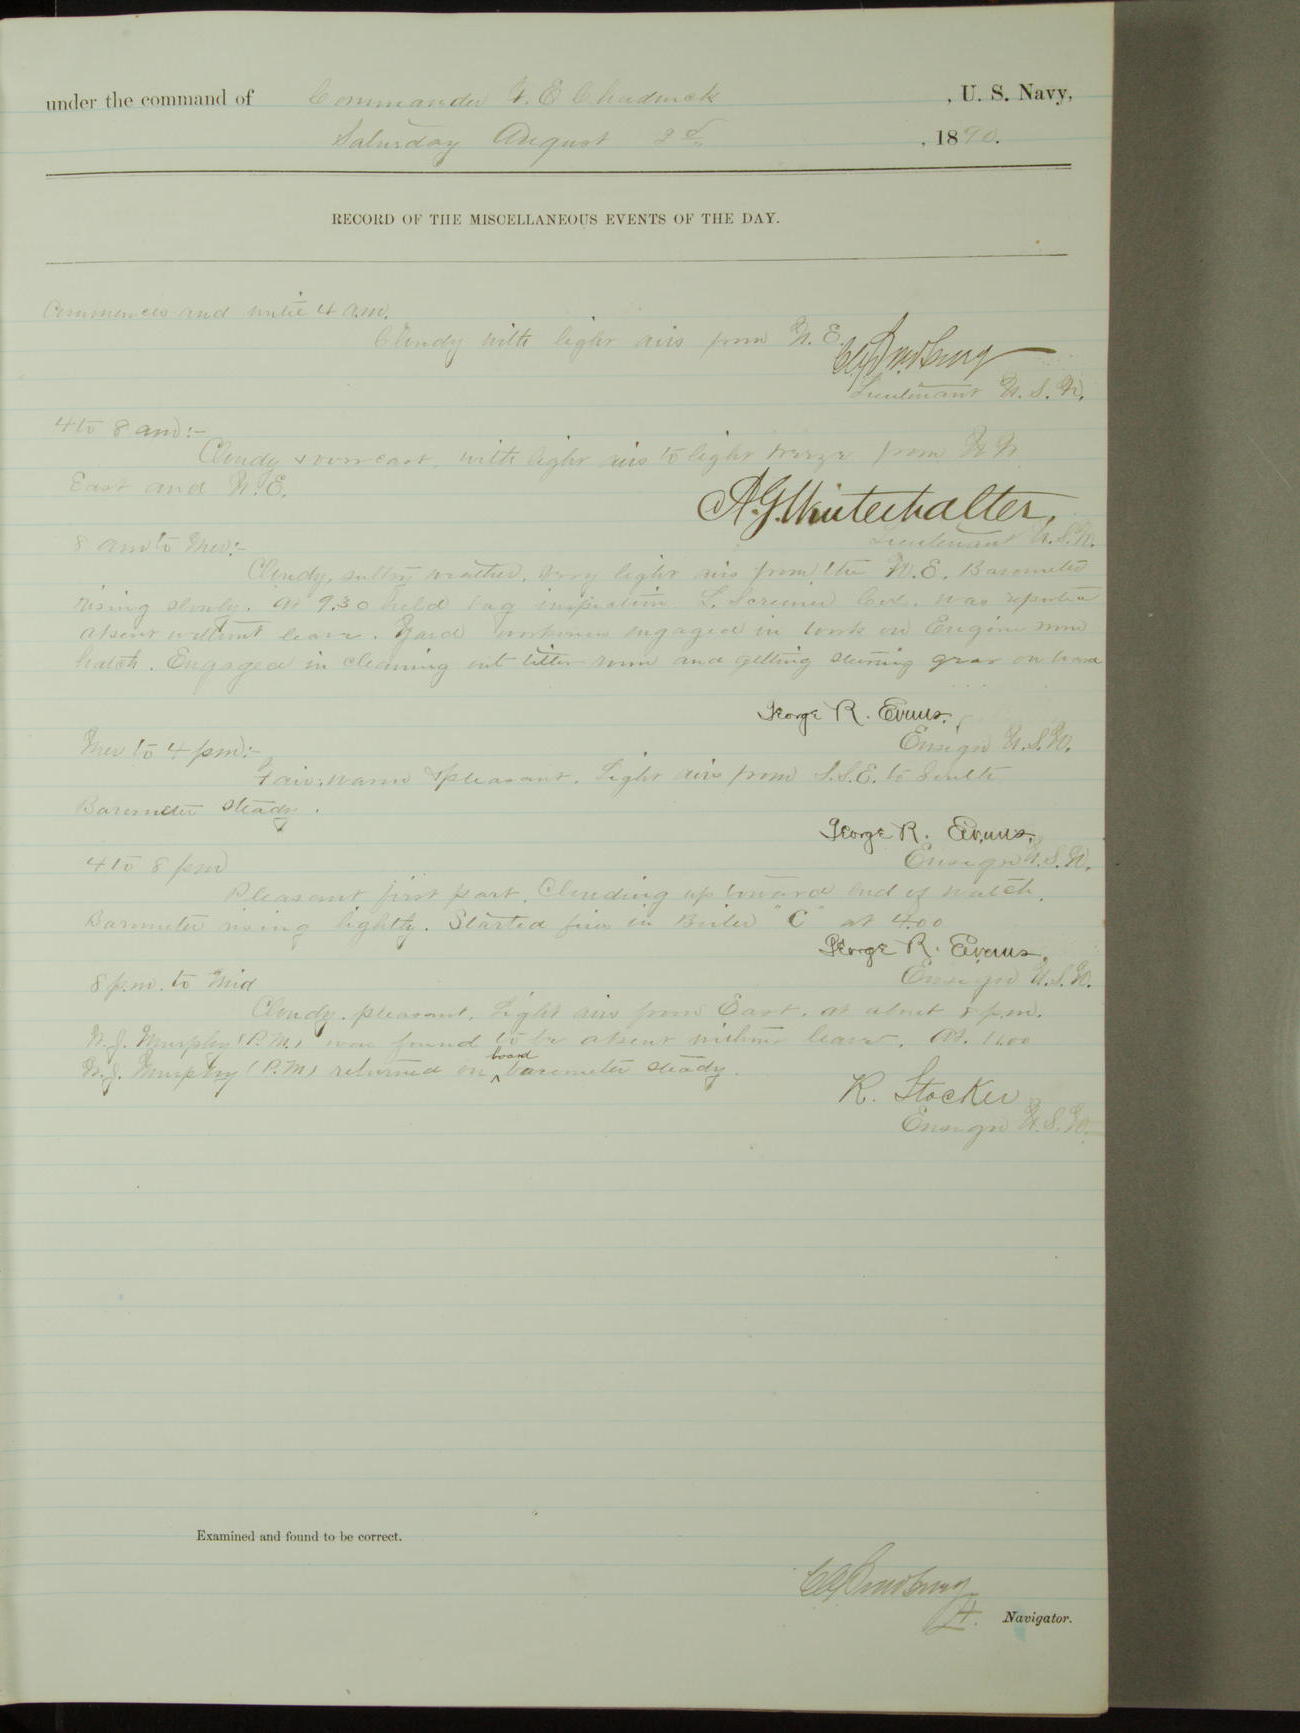 under the command of Commander F. E. Chadwick , U. S. Navy,
Saturday August 2d , 1890.
RECORD OF THE MISCELLANEOUS EVENTS OF THE DAY.
Commences and until 4 a.m.
Cloudy with light airs from N. E.
Lieutenant U. S. N.
4 to 8 am:-
Cloudy & overcast, with light airs to light breeze from N N
East and N. E.
A. G. Winterhalter,
Lieutenant U.S.N.
8 am to Mer:-
Cloudy, sultry weather, very light airs from the N. E. Barometer
rising slowly. At 9.30 held bag inspection was reported
absent without leave. Yard workmen engaged in work on Engine room
hatch. Engaged in cleaning out tiller room and getting steering gear on board
George R. Evans.
Ensign U.S.N.
Mer to 4 pm:-
Fair, warm & pleasant. Light airs from S.S.E. to South
Barometer steady.
George R. Evans.
Ensign U.S.N.
4 to 8 pm
Pleasant first part. Clouding up toward end of watch.
Barometer rising lightly. Started fires in Boiler "C" at 4.00
George R. Evans.
Ensign U.S.N.
8 p.m. to Mid
Cloudy. pleasant. Light airs from East. at about 8 p.m.
W. J. Murphy (P.M.) was found to be absent without leave. At
W. J. Murphy (P.M) returned on board barometer steady.
R. Stocker
Ensign U.S.N.
Examined and found to be correct.
Navigator.